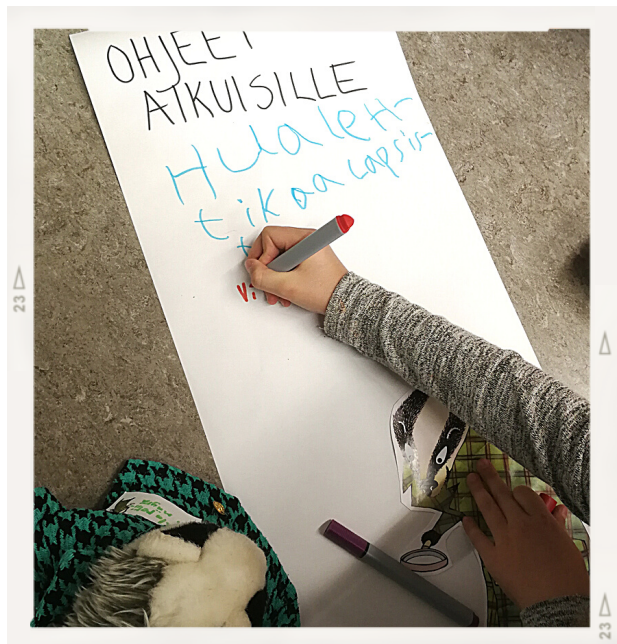 OHJEET
AIKUISILLE
Hualeht-
tikaa lapsis-
t
Vi
23
23